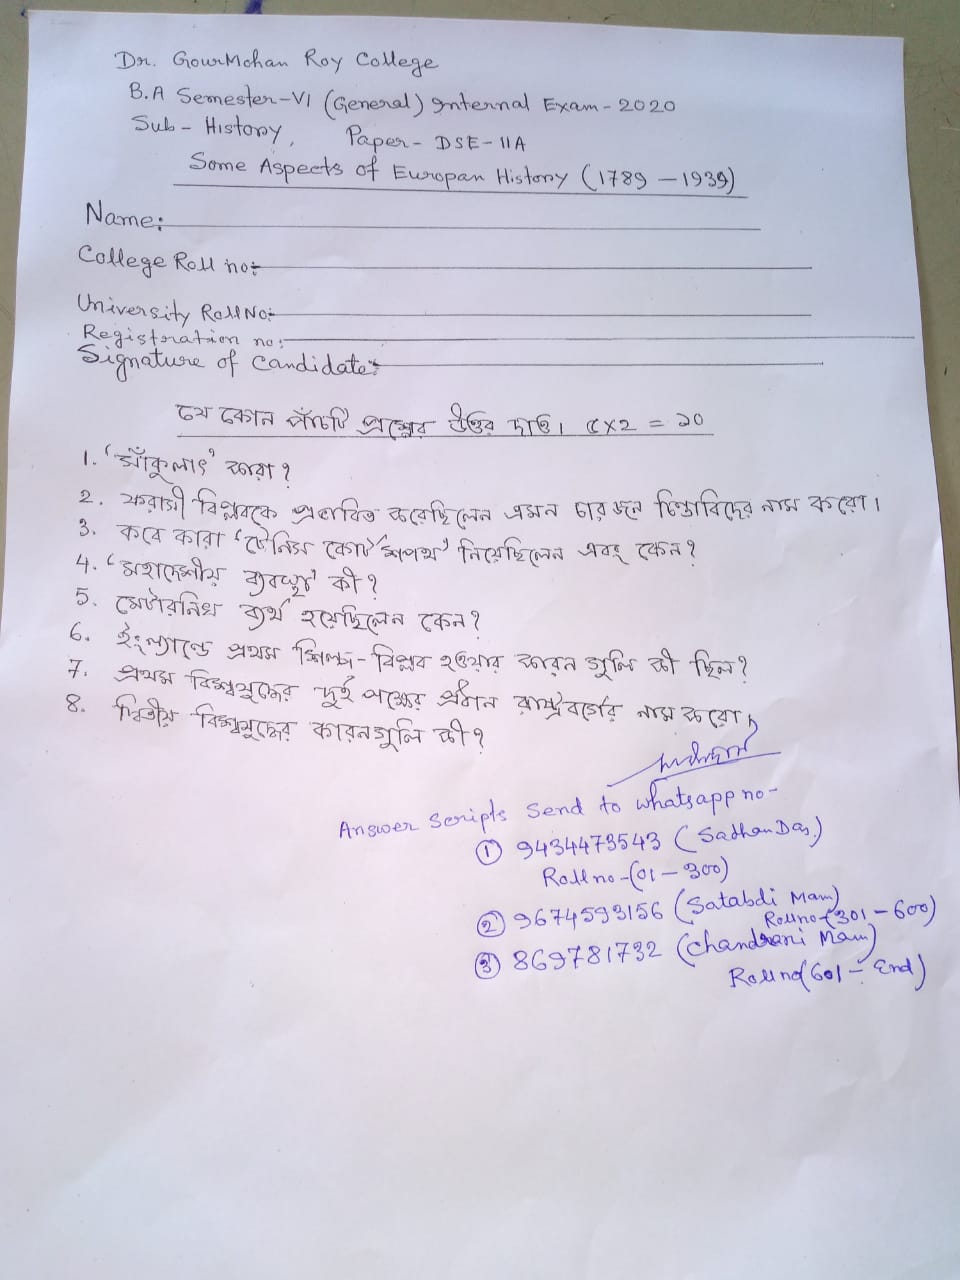 Dr. GourMohan Roy College
B.A Semester-VI (General) Internal Exam-2020
Sub- History, Paper- DSE-IIA
Some Aspects of Europan History (1789 - 1939)
Name:
College Roll no:
University Roll No:
Registration no:
Signature of Candidate:
যে কোন পাঁচটি প্রশ্নের উত্তর দাও। ৫X2 = ১০
1. 'সাঁকুলাৎ' কারা?
2. ফরাসী বিপ্লবকে প্রভাবিত করেছিলেন এমন চারজন চিন্তাবিদের নাম করো।
3. কবে কারা 'টেনিস কোর্ট শপথ' নিয়েছিলেন এবং কেন?
4. 'মহাদেশীয় ব্যবস্থা' কী?
5. মেটারনিখ ব্যর্থ হয়েছিলেন কেন?
6. ইংল্যান্ডে প্রথম শিল্প-বিপ্লব হওয়ার কারন গুলি কী ছিল?
7. প্রথম বিশ্বযুদ্ধের দুই পক্ষের প্রধান রাষ্ট্রবর্গের নাম করো।
8. দ্বিতীয় বিশ্বযুদ্ধের কারনগুলি কী?
Answer scripts send to whatsapp no-
① 9434473543 (Sadhan Das)
Roll no-(01-300)
② 9674593156 (Satabdi Mam)
Roll no-(301-600)
③ 869781732 (Chandrani Mam)
Roll no(601 - End)